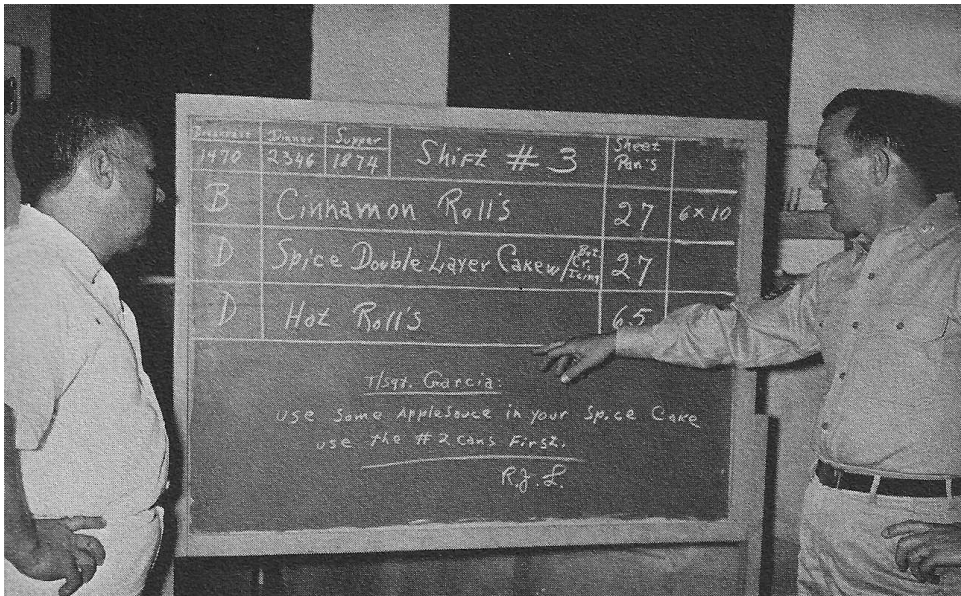 Breakfast Dinner Supper
1470 2346 1874 Shift # 3 Sheet Pan's
B Cinnamon Roll's 27 6x10
D Spice Double Layer Cake w/ But. Cr. Icing 27
D Hot Roll's 65
T/Sgt. Garcia:
use some Applesauce in your Spice Cake
use the #2 cans First.
R.J.L.